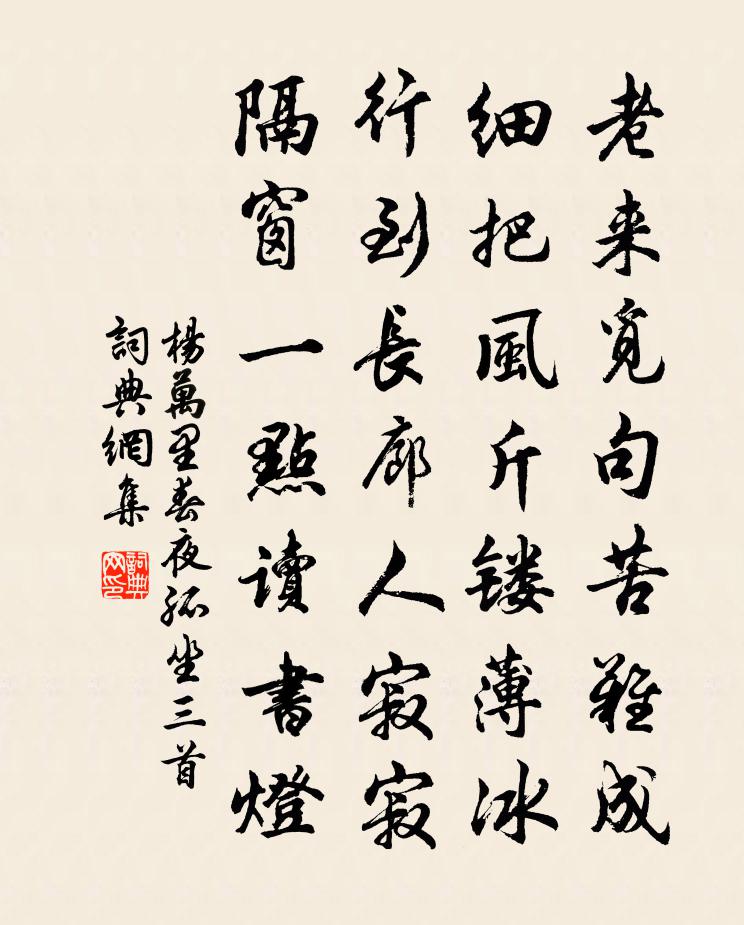 老来覓句苦難成
细把風斤镂薄冰
行到長廊人寂寂
隔窗一點讀書燈
楊萬里春夜孤坐三首
詞典網集
詞典網印